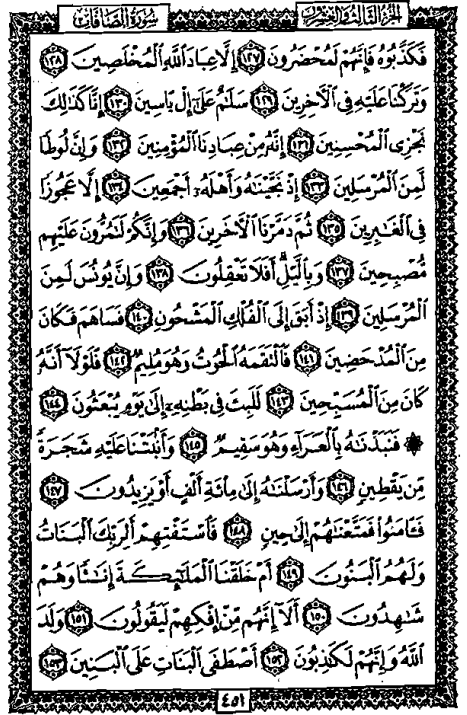 الجزء الثالث والعشرون
سورة الصافات
فَكَذَّبُوهُ فَإِنَّهُمْ لَمُحْضَرُونَ ١٢٧ إِلَّا عِبَادَ ٱللَّهِ ٱلْمُخْلَصِينَ ١٢٨
وَتَرَكْنَا عَلَيْهِ فِى ٱلْآخِرِينَ ١٢٩ سَلَٰمٌ عَلَىٰٓ إِلْ يَاسِينَ ١٣٠ إِنَّا كَذَٰلِكَ
نَجْزِى ٱلْمُحْسِنِينَ ١٣١ إِنَّهُۥ مِنْ عِبَادِنَا ٱلْمُؤْمِنِينَ ١٣٢ وَإِنَّ لُوطًا
لَّمِنَ ٱلْمُرْسَلِينَ ١٣٣ إِذْ نَجَّيْنَٰهُ وَأَهْلَهُۥٓ أَجْمَعِينَ ١٣٤ إِلَّا عَجُوزًا
فِى ٱلْغَٰبِرِينَ ١٣٥ ثُمَّ دَمَّرْنَا ٱلْآخَرِينَ ١٣٦ وَإِنَّكُمْ لَتَمُرُّونَ عَلَيْهِم
مُّصْبِحِينَ ١٣٧ وَبِٱلَّيْلِ ۗ أَفَلَا تَعْقِلُونَ ١٣٨ وَإِنَّ يُونُسَ لَمِنَ
ٱلْمُرْسَلِينَ ١٣٩ إِذْ أَبَقَ إِلَى ٱلْفُلْكِ ٱلْمَشْحُونِ ١٤٠ فَسَاهَمَ فَكَانَ
مِنَ ٱلْمُدْحَضِينَ ١٤١ فَٱلْتَقَمَهُ ٱلْحُوتُ وَهُوَ مُلِيمٌ ١٤٢ فَلَوْلَآ أَنَّهُۥ
كَانَ مِنَ ٱلْمُسَبِّحِينَ ١٤٣ لَلَبِثَ فِى بَطْنِهِۦٓ إِلَىٰ يَوْمِ يُبْعَثُونَ ١٤٤
۞ فَنَبَذْنَٰهُ بِٱلْعَرَآءِ وَهُوَ سَقِيمٌ ١٤٥ وَأَنۢبَتْنَا عَلَيْهِ شَجَرَةً
مِّن يَقْطِينٍ ١٤٦ وَأَرْسَلْنَٰهُ إِلَىٰ مِا۟ئَةِ أَلْفٍ أَوْ يَزِيدُونَ ١٤٧
فَـَٔامَنُوا۟ فَمَتَّعْنَٰهُمْ إِلَىٰ حِينٍ ١٤٨ فَٱسْتَفْتِهِمْ أَلِرَبِّكَ ٱلْبَنَاتُ
وَلَهُمُ ٱلْبَنُونَ ١٤٩ أَمْ خَلَقْنَا ٱلْمَلَٰٓئِكَةَ إِنَٰثًا وَهُمْ
شَٰهِدُونَ ١٥٠ أَلَآ إِنَّهُم مِّنْ إِفْكِهِمْ لَيَقُولُونَ ١٥١ وَلَدَ
ٱللَّهُ وَإِنَّهُمْ لَكَٰذِبُونَ ١٥٢ أَصْطَفَى ٱلْبَنَاتِ عَلَى ٱلْبَنِينَ ١٥٣
٤٥١